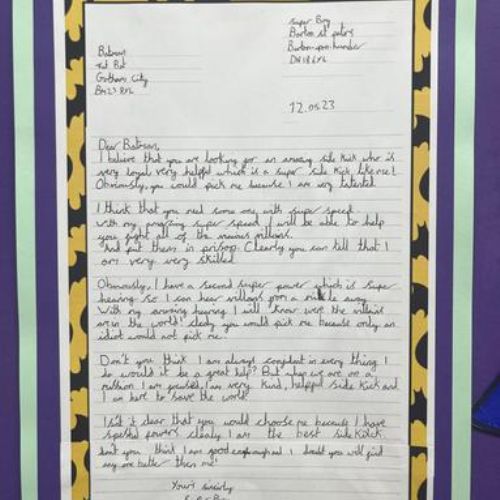 Super Boy
Barton st peters
Barton-upon-humber
DN18 6YL
Batman
Gotham City
12.05.23
Dear Batman,
I believe that you are looking for an amazing side kick who is
very loyal very helpful which is a super side kick like me!
Obviously, you could pick me because I am very talented.
I think that you need some one with super speed
with my amazing super speed I will be able to help
you fight all of the villians.
And put them in prison. Clearly you can tell that I
am very very skilled.
Obviously, I have a second super power which is super
hearing so I can hear villans from a mile away
With my amazing hearing I will know were the villains
are in the world! clealy you would pick me because only an
idiot would not pick me.
Don't you think I am always confident in every thing I
do would it be a great help? But when we are on a
mission I am focused, I am very kind, helpful side kick and
I am here to save the world.
Isn't it clear that you would choose me because I have
powers clealy I am the best side kick.
don't you think I am good enough and I doubt you will find
any one better then me!
Yours sincerly